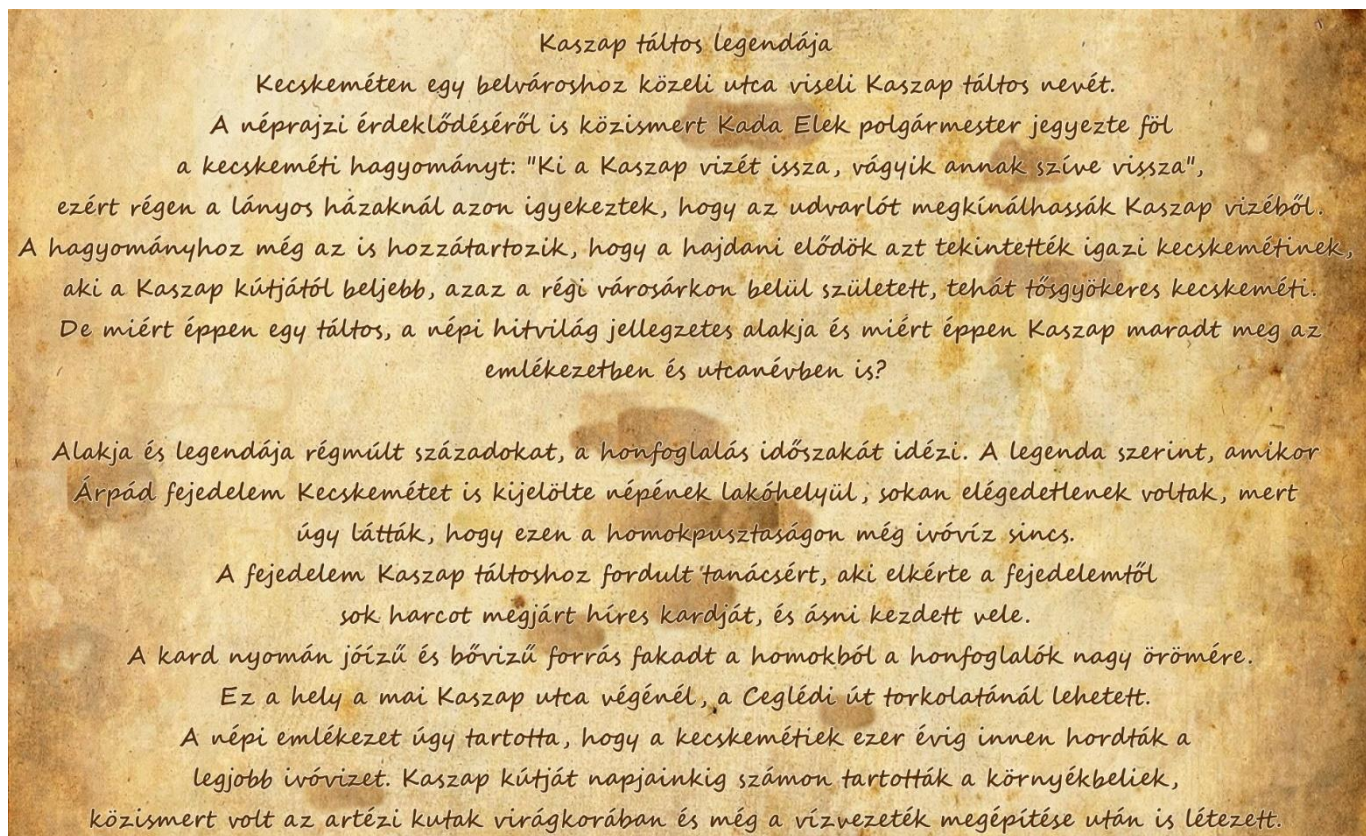 Kaszap táltos legendája
Kecskeméten egy belvároshoz közeli utca viseli Kaszap táltos nevét.
A néprajzi érdeklődéséről is közismert Kada Elek polgármester jegyezte föl
a kecskeméti hagyományt: "Ki a Kaszap vizét issza, vágyik annak szíve vissza",
ezért régen a lányos házaknál azon igyekeztek, hogy az udvarlót megkínálhassák Kaszap vizéből.
A hagyományhoz még az is hozzátartozik, hogy a hajdani elődök azt tekintették igazi kecskemétinek,
aki a Kaszap kútjától beljebb, azaz a régi városárkon belül született, tehát tősgyökeres kecskeméti.
De miért éppen egy táltos, a népi hitvilág jellegzetes alakja és miért éppen Kaszap maradt meg az
emlékezetben és utcanévben is?
Alakja és legendája régmúlt századokat, a honfoglalás időszakát idézi. A legenda szerint, amikor
Árpád fejedelem Kecskemétet is kijelölte népének lakóhelyül, sokan elégedetlenek voltak, mert
úgy látták, hogy ezen a homokpusztaságon még ivóvíz sincs.
A fejedelem Kaszap táltoshoz fordult tanácsért, aki elkérte a fejedelemtől
sok harcot megjárt híres kardját, és ásni kezdett vele.
A kard nyomán jóízű és bővizű forrás fakadt a homokból a honfoglalók nagy örömére.
Ez a hely a mai Kaszap utca végénél, a Ceglédi út torkolatánál lehetett.
A népi emlékezet úgy tartotta, hogy a kecskemétiek ezer évig innen hordták a
legjobb ivóvizet. Kaszap kútját napjainkig számon tartották a környékbeliek,
közismert volt az artézi kutak virágkorában és még a vízvezeték megépítése után is létezett.